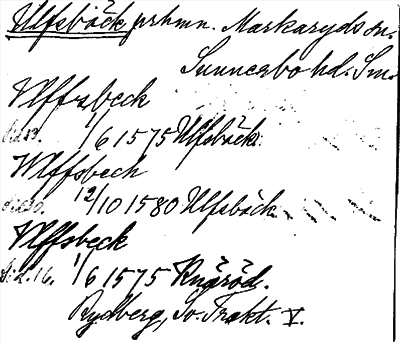 Ulfsbäck prhmn. Markaryds sn.
Sunnerbo hd. Sm.
Ulffzbeck
Sid 19. 1/6 1575 Ulfsbäck.
Wlffsbech
12/10 1580 Ulfsbäck.
Wlffsbeck
Sid. 16. 1/6 1575 Knäröd.
Rydberg, Sv. Trakt. V.